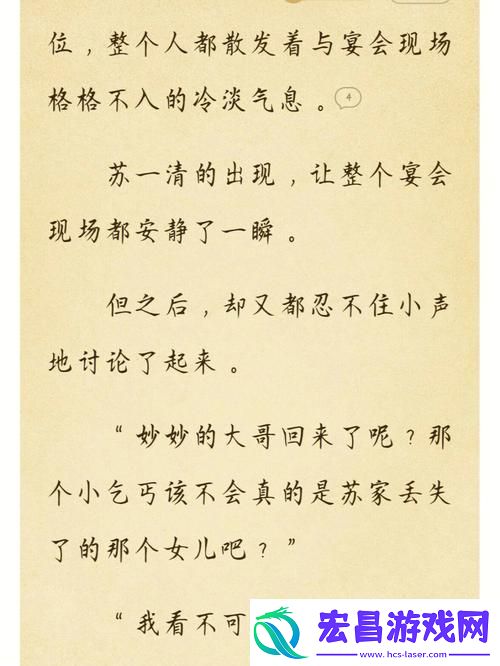 位，整个人都散发着与宴会现场
格格不入的冷淡气息。4
苏一清的出现，让整个宴会
现场都安静了一瞬。
但之后，却又都忍不住小声
地讨论了起来。
“妙妙的大哥回来了呢？那
个小乞丐该不会真的是苏家丢失
了的那个女儿吧？”
“我看不可
宏昌游戏网
www.hcs-laser.com